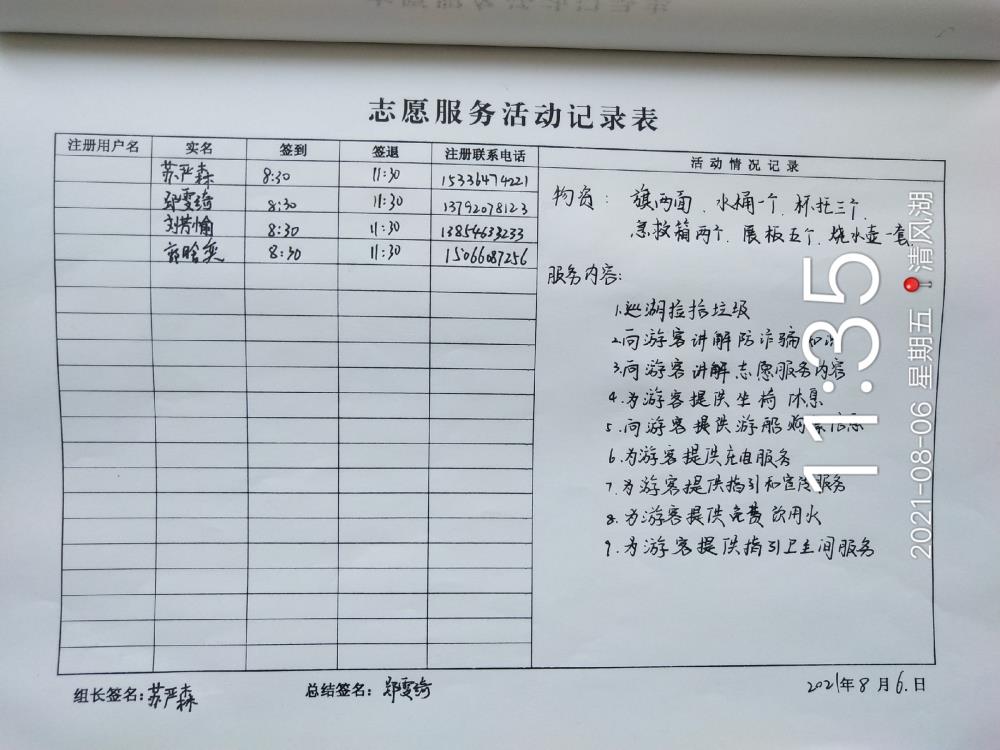 志愿服务活动记录表
注册用户名 实名 签到 签退 注册联系电话 活动情况记录
苏严森 8:30 11:30 15336474221
郑雯绮 8:30 11:30 13792078123
刘芳愉 8:30 11:30 13854633233
8:30 11:30 15066087256
物资：旗两面、水桶一个、杯托三个、
急救箱两个、展板五个、烧水壶一套
服务内容：
1.巡湖捡拾垃圾
2.向游客讲解防诈骗知识
3.向游客讲解志愿服务内容
4.为游客提供坐椅休息
5.向游客提供游船购票信息
6.为游客提供充电服务
7.为游客提供指引和宣传服务
8.为游客提供免费饮用水
9.为游客提供指引卫生间服务
组长签名：苏严森 总结签名：郑雯绮 2021年8月6日
11:35
2021-08-06 星期五 清风湖